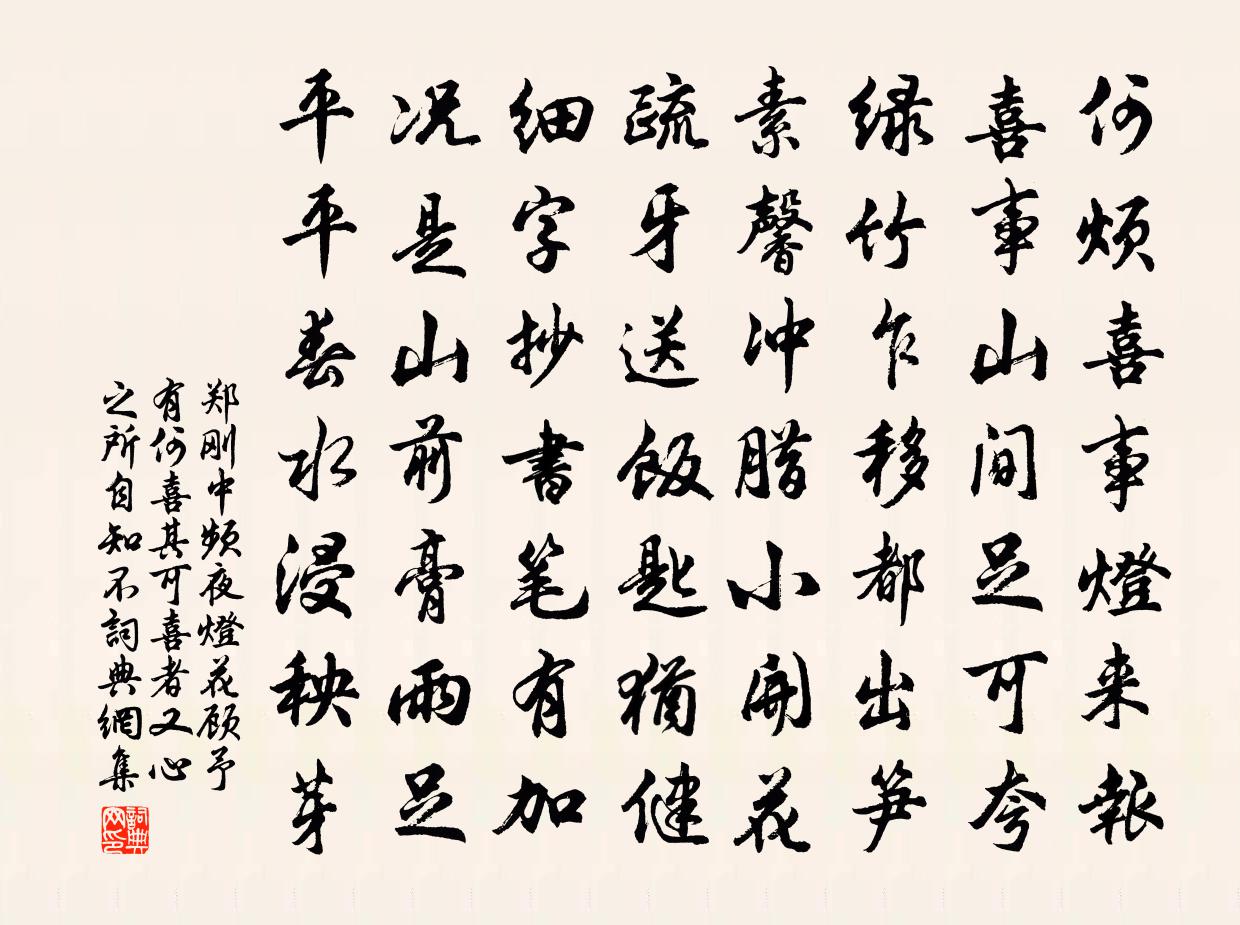 何烦喜事燈来報
喜事山间足可夸
緑竹乍移都出笋
素馨冲腊小開花
疏牙送飯匙猶健
细字抄書笔有加
况是山前膏雨足
平平春水浸秧芽
郑刚中频夜燈花顾予
有何喜其可喜者又心
之所自知不詞典網集
詞典
网印